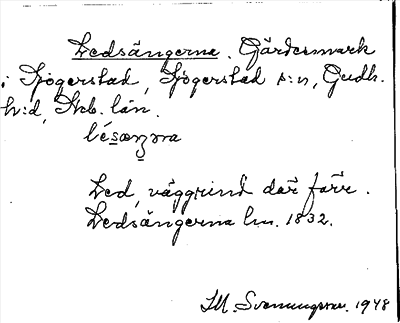 Ledsängerna. Gärdesmark
i Sjögerstad, Sjögerstad s:n, Gudh.
h:d, Skb. län.
lésæŋna
Led, väggrind där förr.
Ledsängerna lm. 1832.
M. Svenungsson. 1948